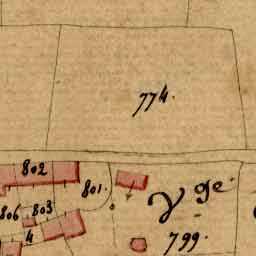 774.
802
801.
806
803
4
799.